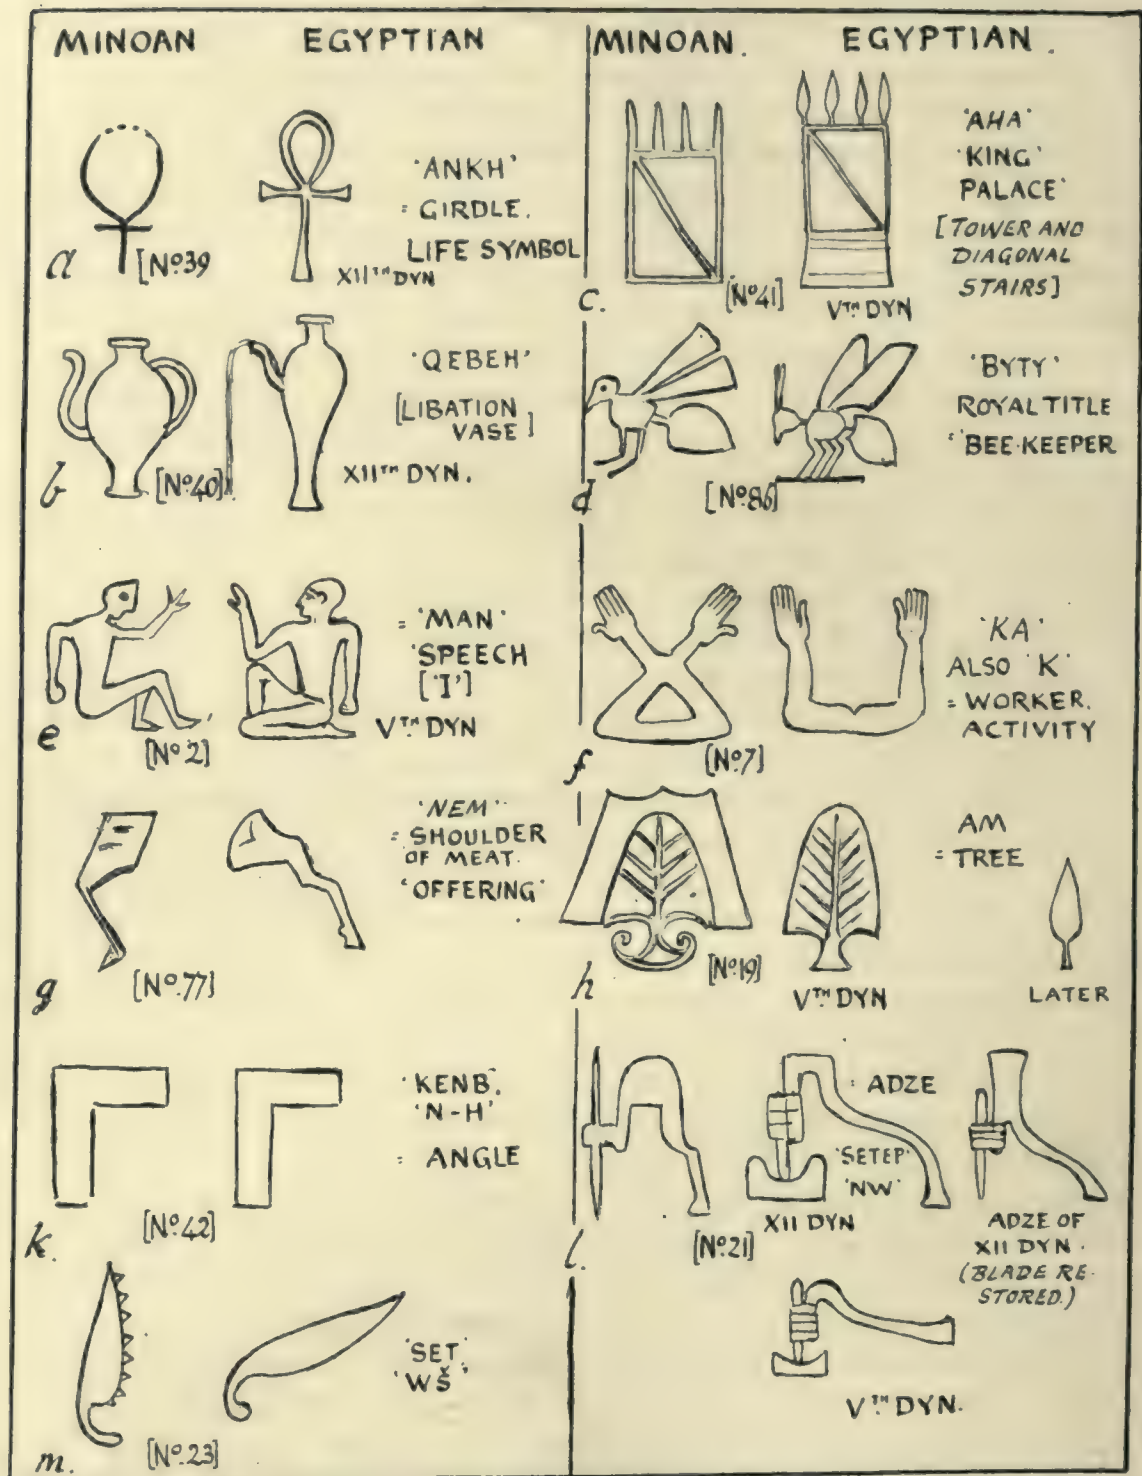 MINOAN EGYPTIAN
a
[Nº39
XIITH DYN
'ANKH'
= GIRDLE.
LIFE SYMBOL
b
[Nº40]
'QEBEH'
[LIBATION
VASE]
XIITH DYN.
e
[Nº2]
= 'MAN'
'SPEECH
['I']
VTH DYN
g
[Nº77]
'NEM'
= SHOULDER
OF MEAT.
'OFFERING'
k.
[Nº42]
'KENB'.
'N-H'
= ANGLE
m.
[Nº23]
'SET'
'WŠ'
MINOAN. EGYPTIAN.
c.
[Nº41]
VTH DYN
'AHA'
'KING'
PALACE'
[TOWER AND
DIAGONAL
STAIRS]
d
[Nº86]
'BYTY'
ROYAL TITLE
= 'BEE-KEEPER
f
[Nº7]
'KA'
ALSO 'K'
= WORKER.
ACTIVITY
h
[Nº19]
VTH DYN
AM
= TREE
LATER
l.
[Nº21]
= ADZE
'SETEP'
'NW'
XII DYN
ADZE OF
XII DYN.
(BLADE RE-
STORED.)
VTH DYN.